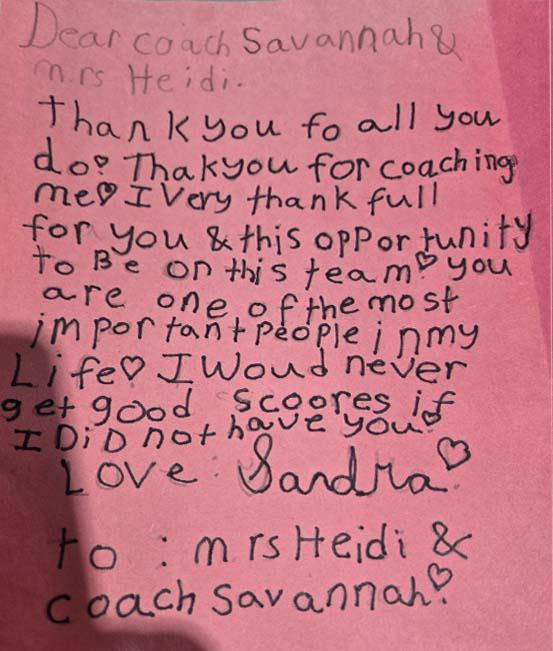 Dear coach Savannah &
mrs Heidi.
Thank you fo all you
do♡ Thakyou for coaching
me♡ I Very thank full
for you & this opportunity
to Be on this team♡ you
are one of the most
important people in my
Life♡ I Woud never
get good scoores if
I DiD not have you♡
Love: Sandra♡
to: mrs Heidi &
coach Savannah♡